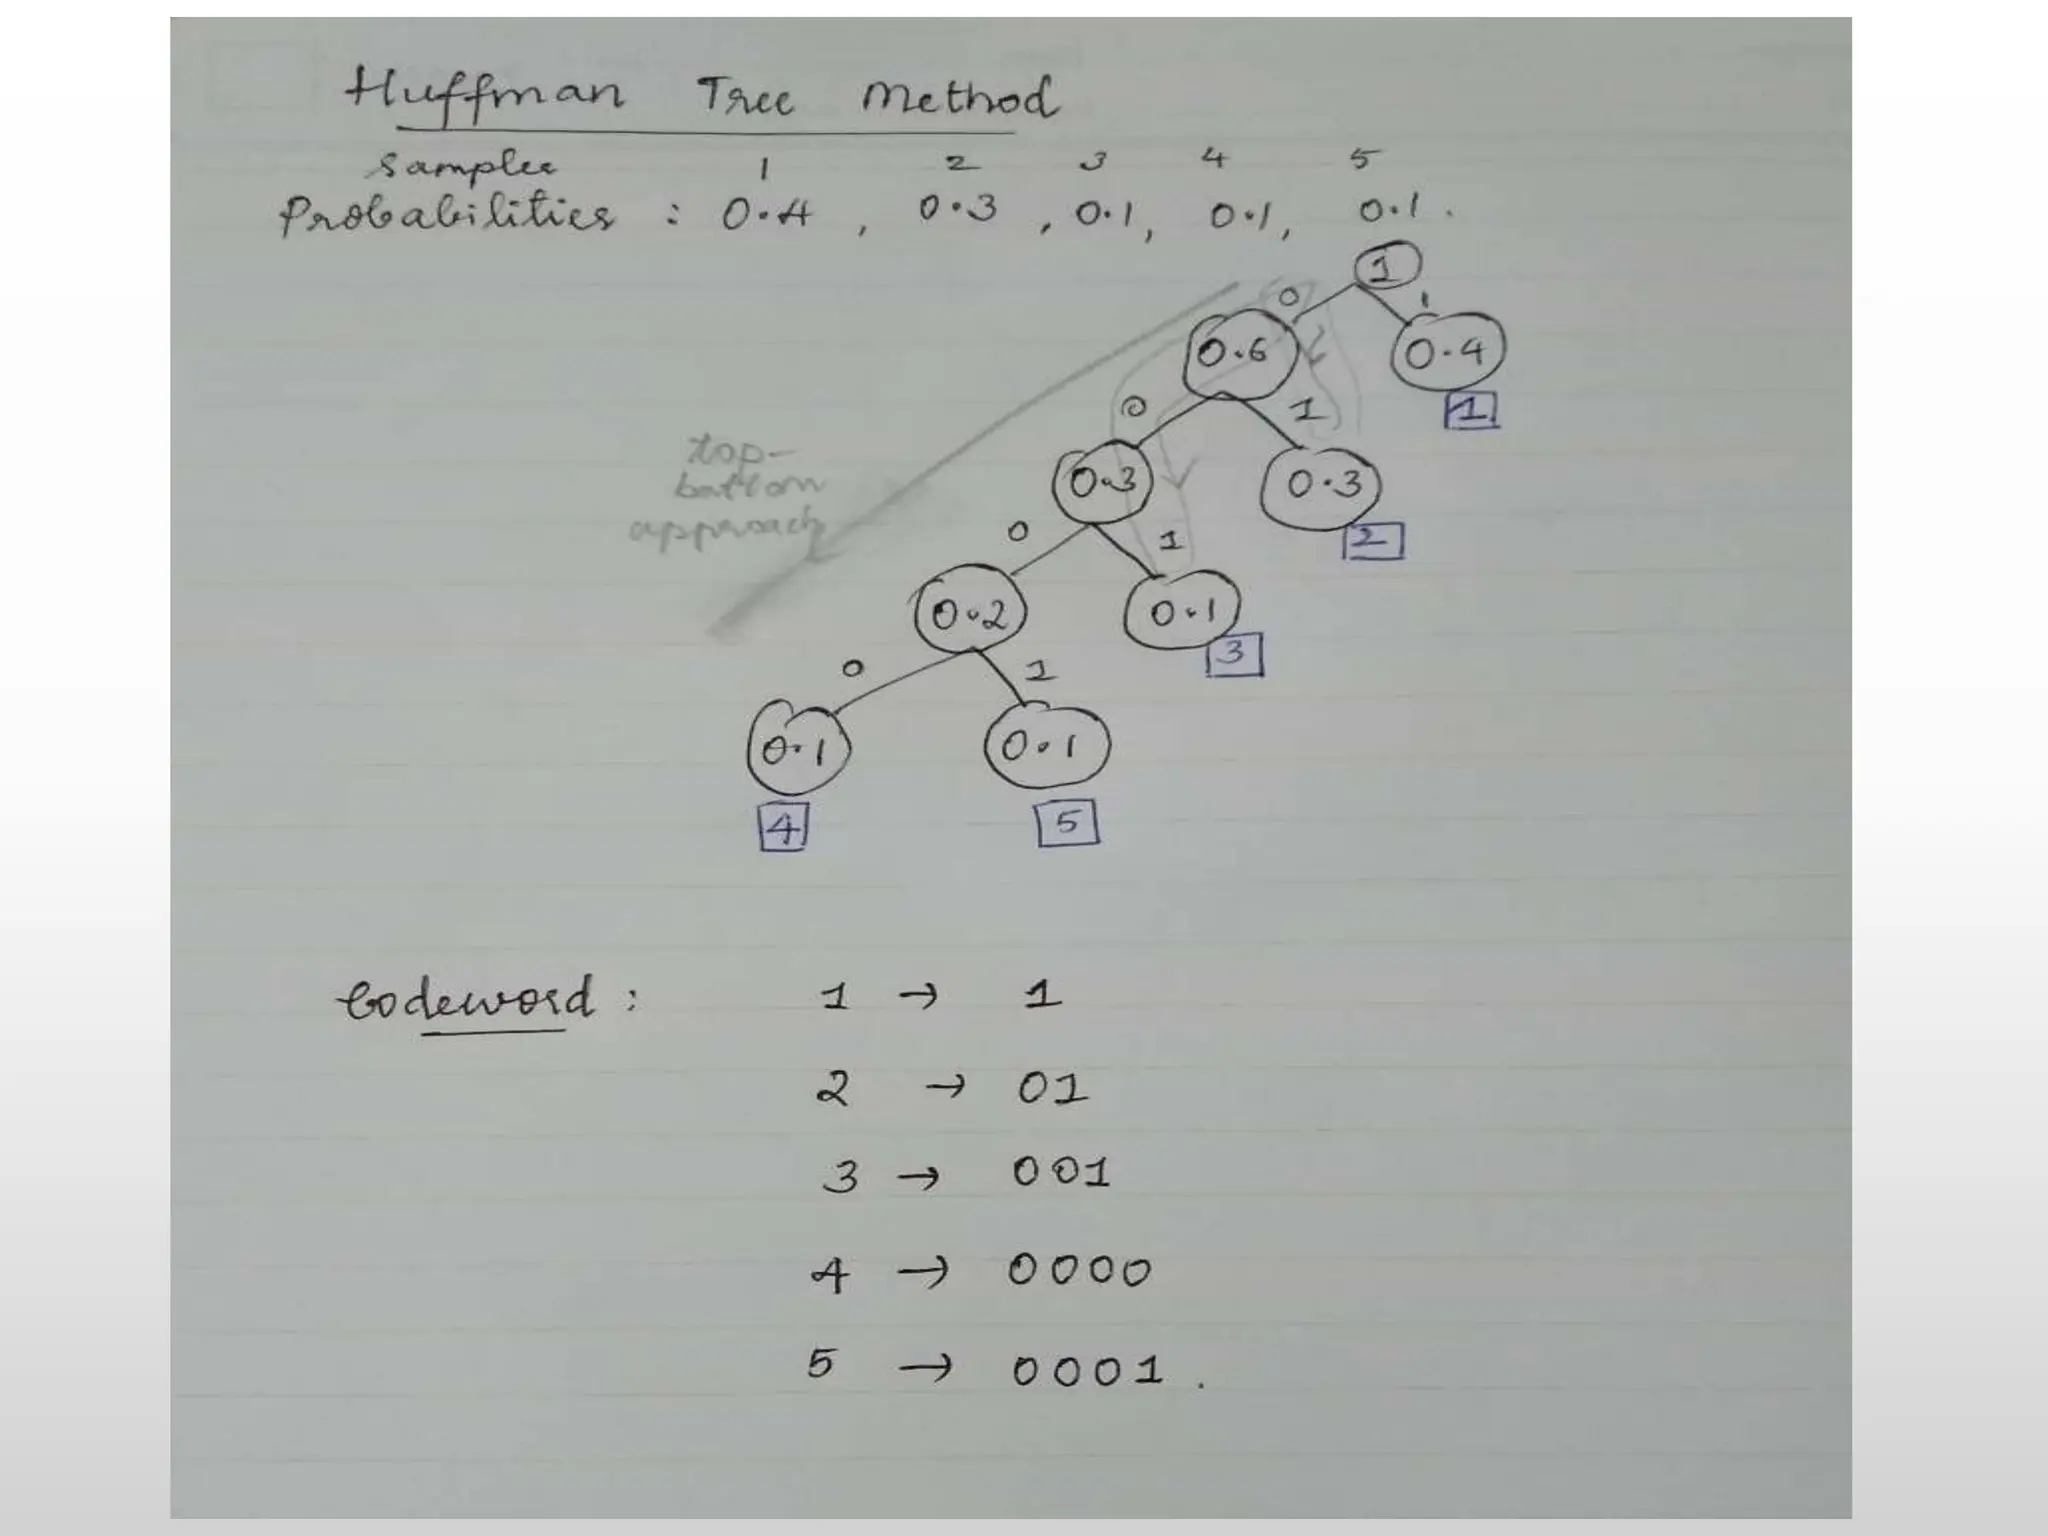 Huffman Tree Method
Samples 1 2 3 4 5
Probabilities : 0.4 , 0.3 , 0.1, 0.1, 0.1 .
1
0 1
0.6 0.4
1
0 1
0.3 0.3
2
0 1
0.2 0.1
3
0 1
0.1 0.1
4 5
top-
bottom
approach
Codeword : 1 → 1
2 → 01
3 → 001
4 → 0000
5 → 0001 .